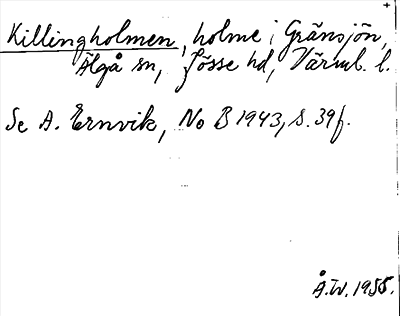 Killingholmen, holme i Gränsjön,
Älgå sn, Jösse hd, Värml. l.
Se A. Ernvik, No B 1943, s. 39f.
Å.W. 1955.